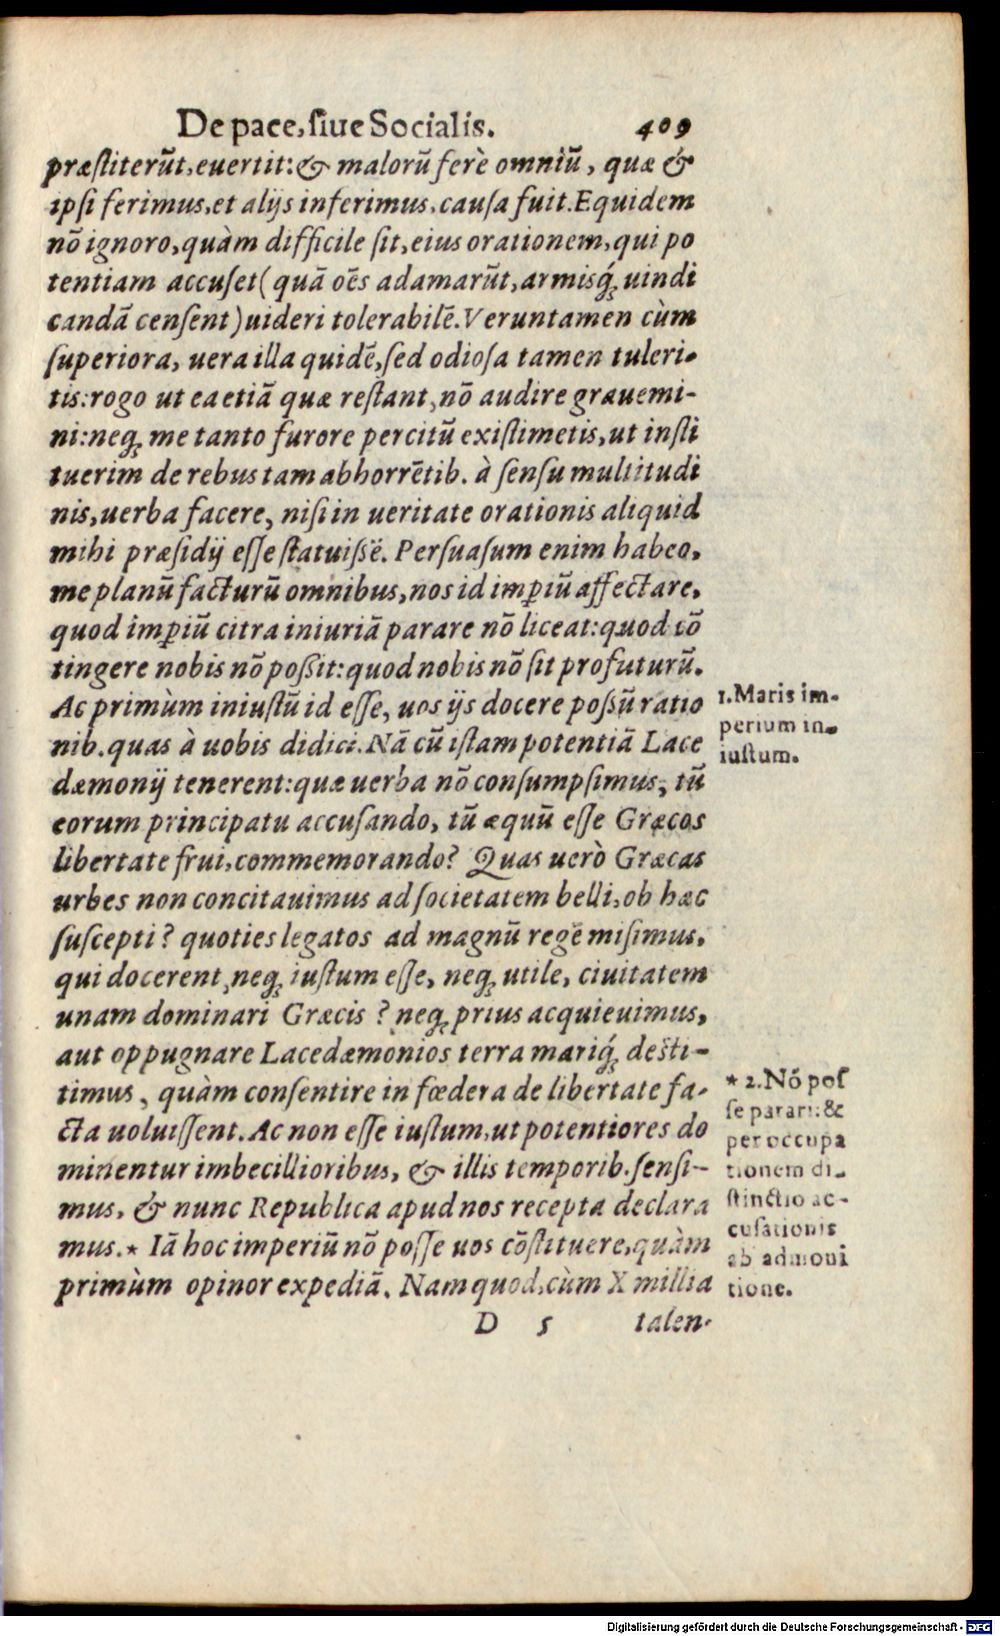 De pace, siue Socialis. 409
præstiterūt, euertit: & malorū ferè omniū, quæ &
ipsi ferimus, et alijs inferimus, causa fuit. Equidem
nō ignoro, quàm difficile sit, eius orationem, qui po
tentiam accuset (quā oēs adamarūt, armisq́; uindi
candā censent) uideri tolerabilē. Veruntamen cùm
superiora, uera illa quidē, sed odiosa tamen tuleri-
tis: rogo ut ea etiā quæ restant, nō audire grauemi-
ni: neq; me tanto furore percitū existimetis, ut insti
tuerim de rebus tam abhorrētib. à sensu multitudi
nis, uerba facere, nisi in ueritate orationis aliquid
mihi præsidij esse statuissē. Persuasum enim habeo,
me planū facturū omnibus, nos id imꝑiū affectare,
quod imꝑiū citra iniuriā parare nō liceat: quod cō
tingere nobis nō possit: quod nobis nō sit profuturū.
Ac primùm iniustū id esse, uos ijs docere possū ratio
nib. quas à uobis didici. Nā cū istam potentiā Lace
dæmonij tenerent: quæ uerba nō consumpsimus, tū
eorum principatu accusando, tū æquū esse Græcos
libertate frui, commemorando? Quas uerò Græcas
urbes non concitauimus ad societatem belli, ob hæc
suscepti? quoties legatos ad magnū regē misimus,
qui docerent, neq; iustum esse, neq; utile, ciuitatem
unam dominari Græcis? neq; prius acquieuimus,
aut oppugnare Lacedæmonios terra mariq́; desti-
timus, quàm consentire in fœdera de libertate fa-
cta uoluissent. Ac non esse iustum, ut potentiores do
minentur imbecillioribus, & illis temporib. sensi-
mus, & nunc Republica apud nos recepta declara
mus. * Iā hoc imperiū nō posse uos cōstituere, quàm
primùm opinor expediā. Nam quod, cùm X millia
D 5 talen-
1. Maris im-
perium in-
iustum.
* 2. Nō pos
se parari: &
per occupa
tionem di-
stinctio ac-
cusationis
ab admoni
tione.
Digitalisierung gefördert durch die Deutsche Forschungsgemeinschaft - DFG